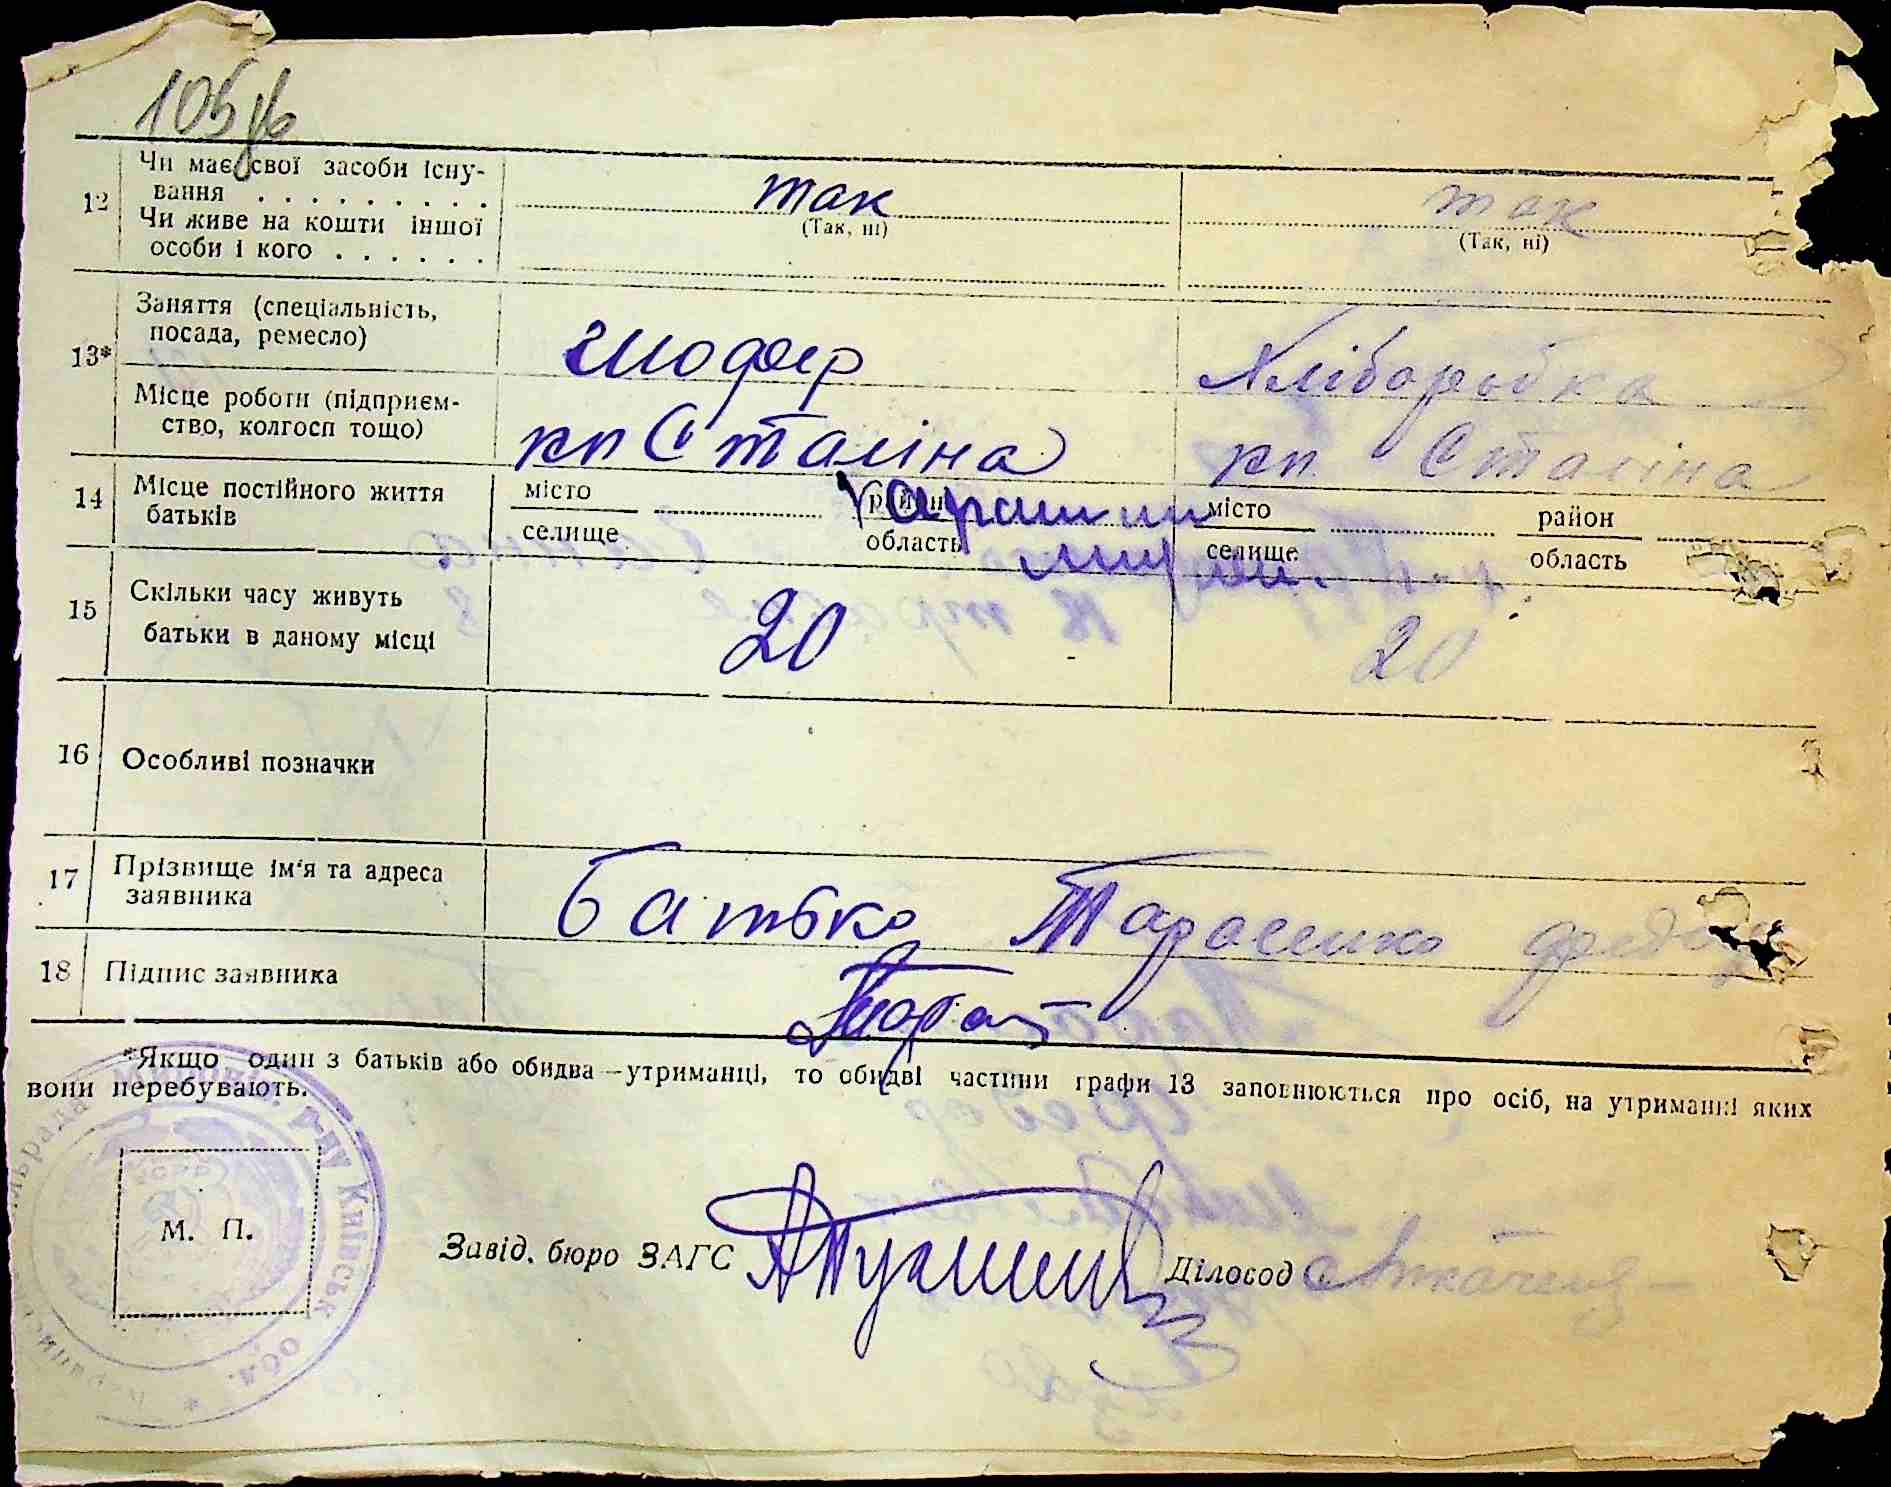 105
Чи має свої засоби існу- так так
12 вання . . . . . . . . . (Так, ні) (Так, ні)
Чи живе на кошти іншої
особи і кого . . . . . .
Заняття (спеціальність,
посада, ремесло) шофер Хліборобка
13*
Місце роботи (підприєм-
ство, колгосп тощо) кп Сталіна кп Сталіна
14 Місце постійного життя місто район місто район
батьків селище область селище область
15 Скільки часу живуть
батьки в даному місці 20 20
16 Особливі позначки
17 Прізвище ім'я та адреса
заявника Батько Тарасенко
18 Підпис заявника
*Якщо один з батьків або обидва—утриманці, то обидві частини графи 13 заповнюються про осіб, на утриманні яких
вони перебувають.
р-ну Київськ. обл.
М. П.
Завід. бюро ЗАГС Діловод